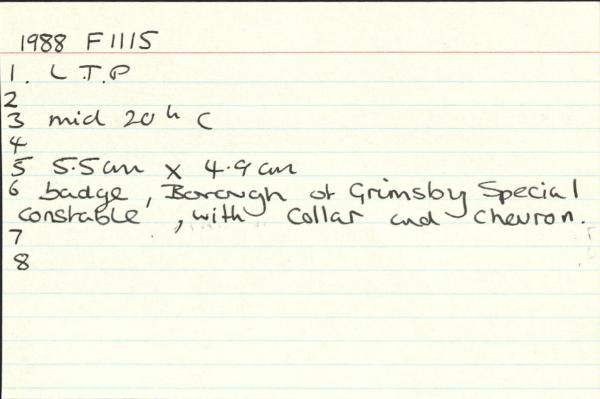 1988 F1115
1. L T.P
2
3 mid 20th C
4
5 5.5cm x 4.9cm
6 badge, Borough of Grimsby Special
constable, with Collar and chevron.
7
8